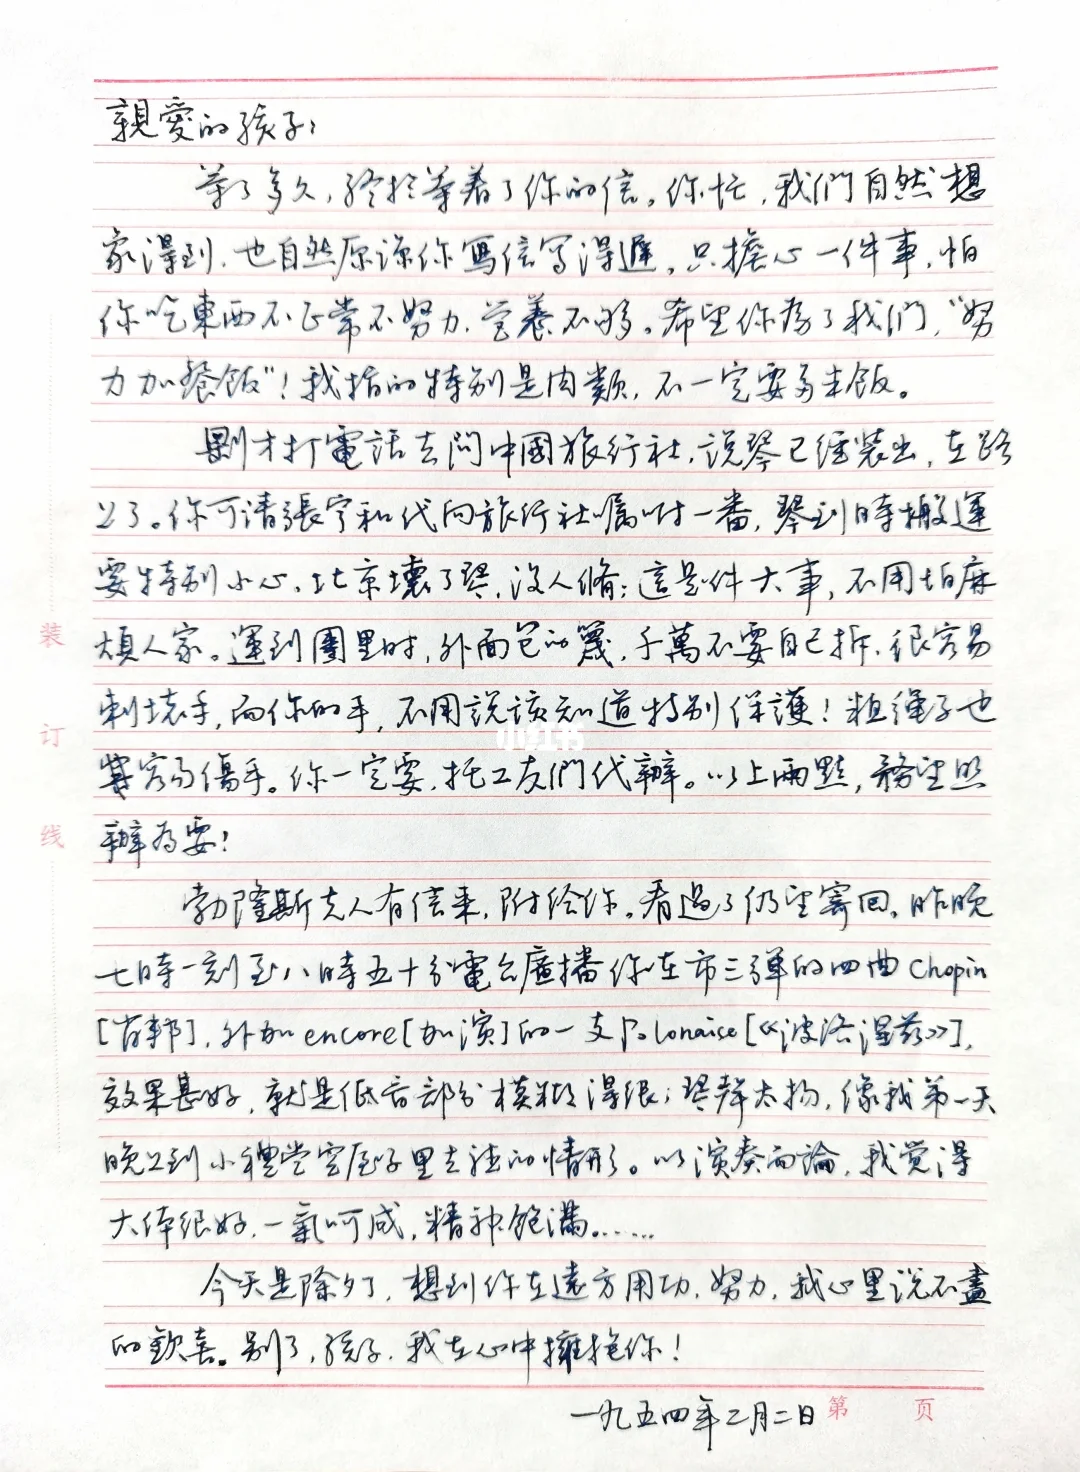 親愛的孩子：
等了多久，終於等着了你的信。你忙，我們自然想
象得到，也自然原諒你寫信寫得遲。只擔心一件事，怕
你吃東西不正常不努力，营養不够。希望你為了我們，“努
力加餐飯”！我指的特别是肉類，不一定要多米飯。
剛才打電話去問中國旅行社，说琴已經裝出，在路
上了。你可请張宁和代向旅行社嘱咐一番，琴到時搬運
要特别小心。北京壞了琴，没人脩；這是件大事，不用怕麻
煩人家。運到團里时，外面包的篾，千萬不要自己拆，很容易
刺壞手，而你的手，不用説該知道特别保護！粗繩子也
容易傷手。你一定要，托工友們代辦。以上兩點，務望照
辦为要！
勃隆斯丹夫人有信来，附给你。看過了仍望寄回。昨晚
七時一刻至八時五十分電台廣播你在市三弹的四曲Chopin
[肖邦]，外加encore[加演]的一支Polonaise[《波洛涅兹》]，
效果甚好，就是低音部分模糊得很；琴聲太扬，像我第一天
晚上到小禮堂空屋子里去聽的情形。以演奏而論，我觉得
大体很好，一氣呵成，精神飽滿。……
今天是除夕了，想到你在遠方用功，努力，我心里说不盡
的歡喜。别了，孩子，我在心中擁抱你！
一九五四年二月二日
第 页
装
订
线
小红书